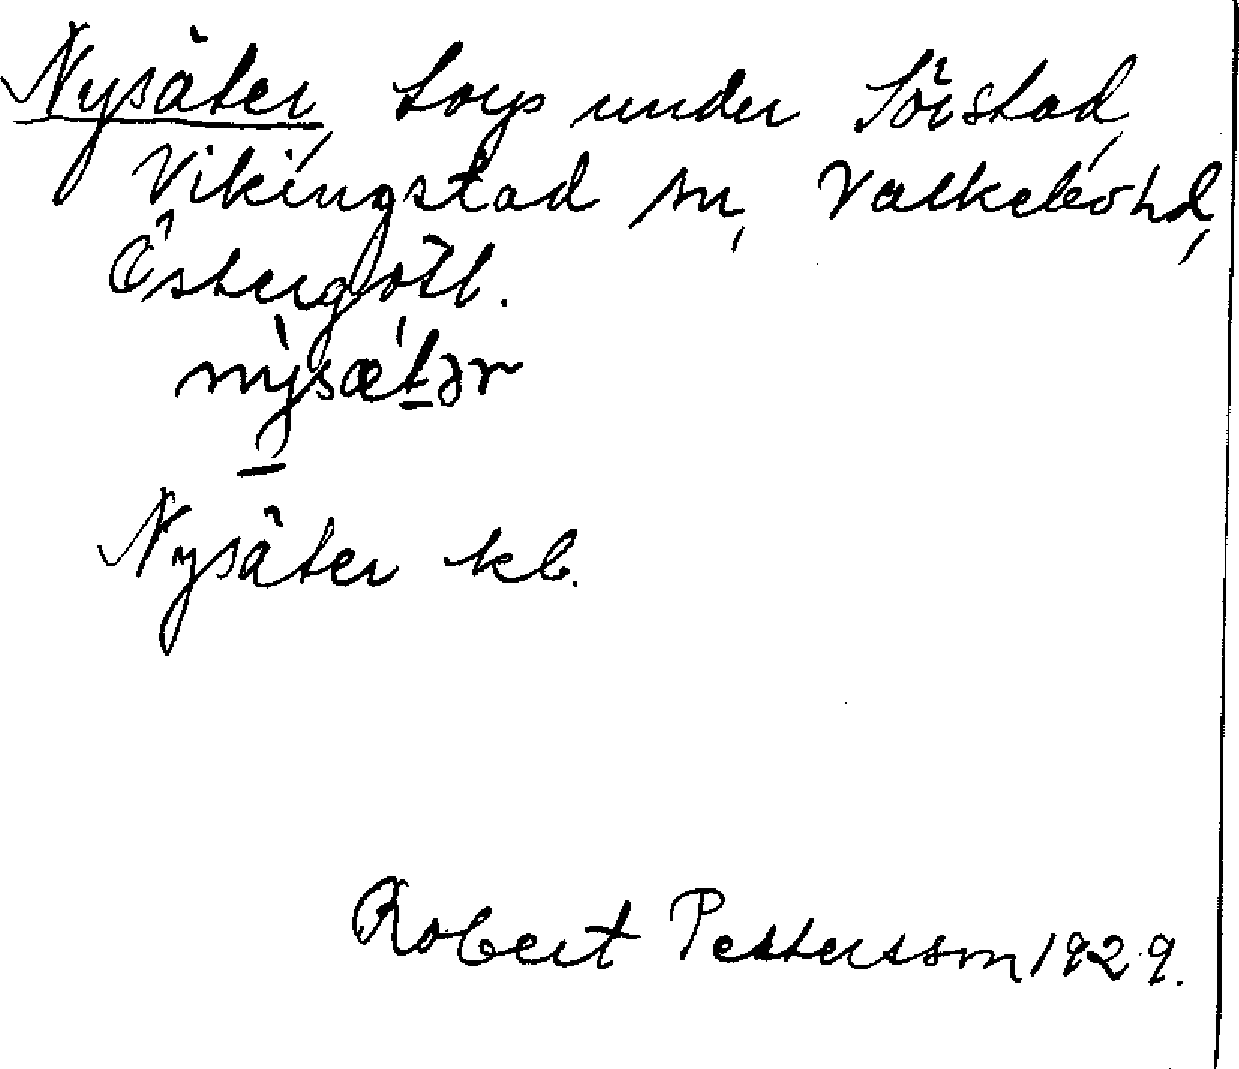 Nysäter, torp under Sörstad,
Vikingstad sn, Valkebo hd,
Östergötl.
nỳsæ̀tər
Nysäter kb.
Robert Pettersson 1929.